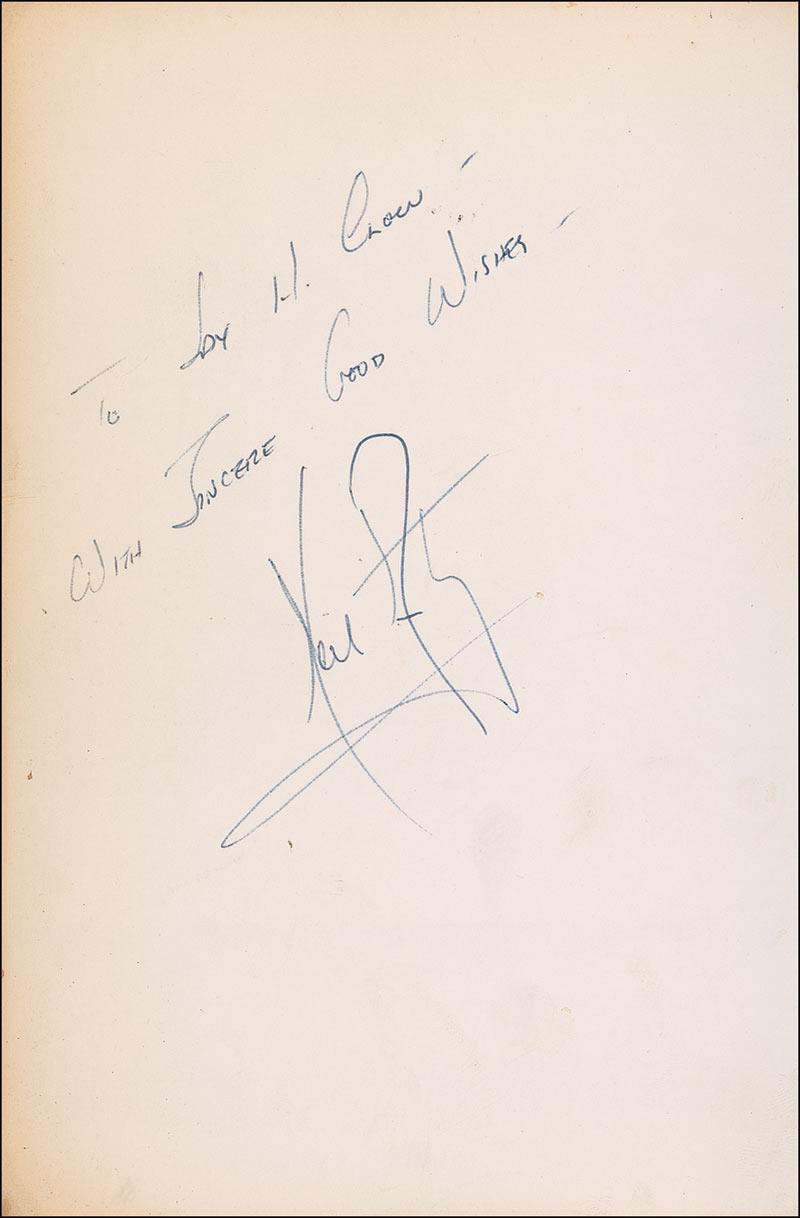 To Jay H. Clow -
With Sincere Good Wishes -
Neil